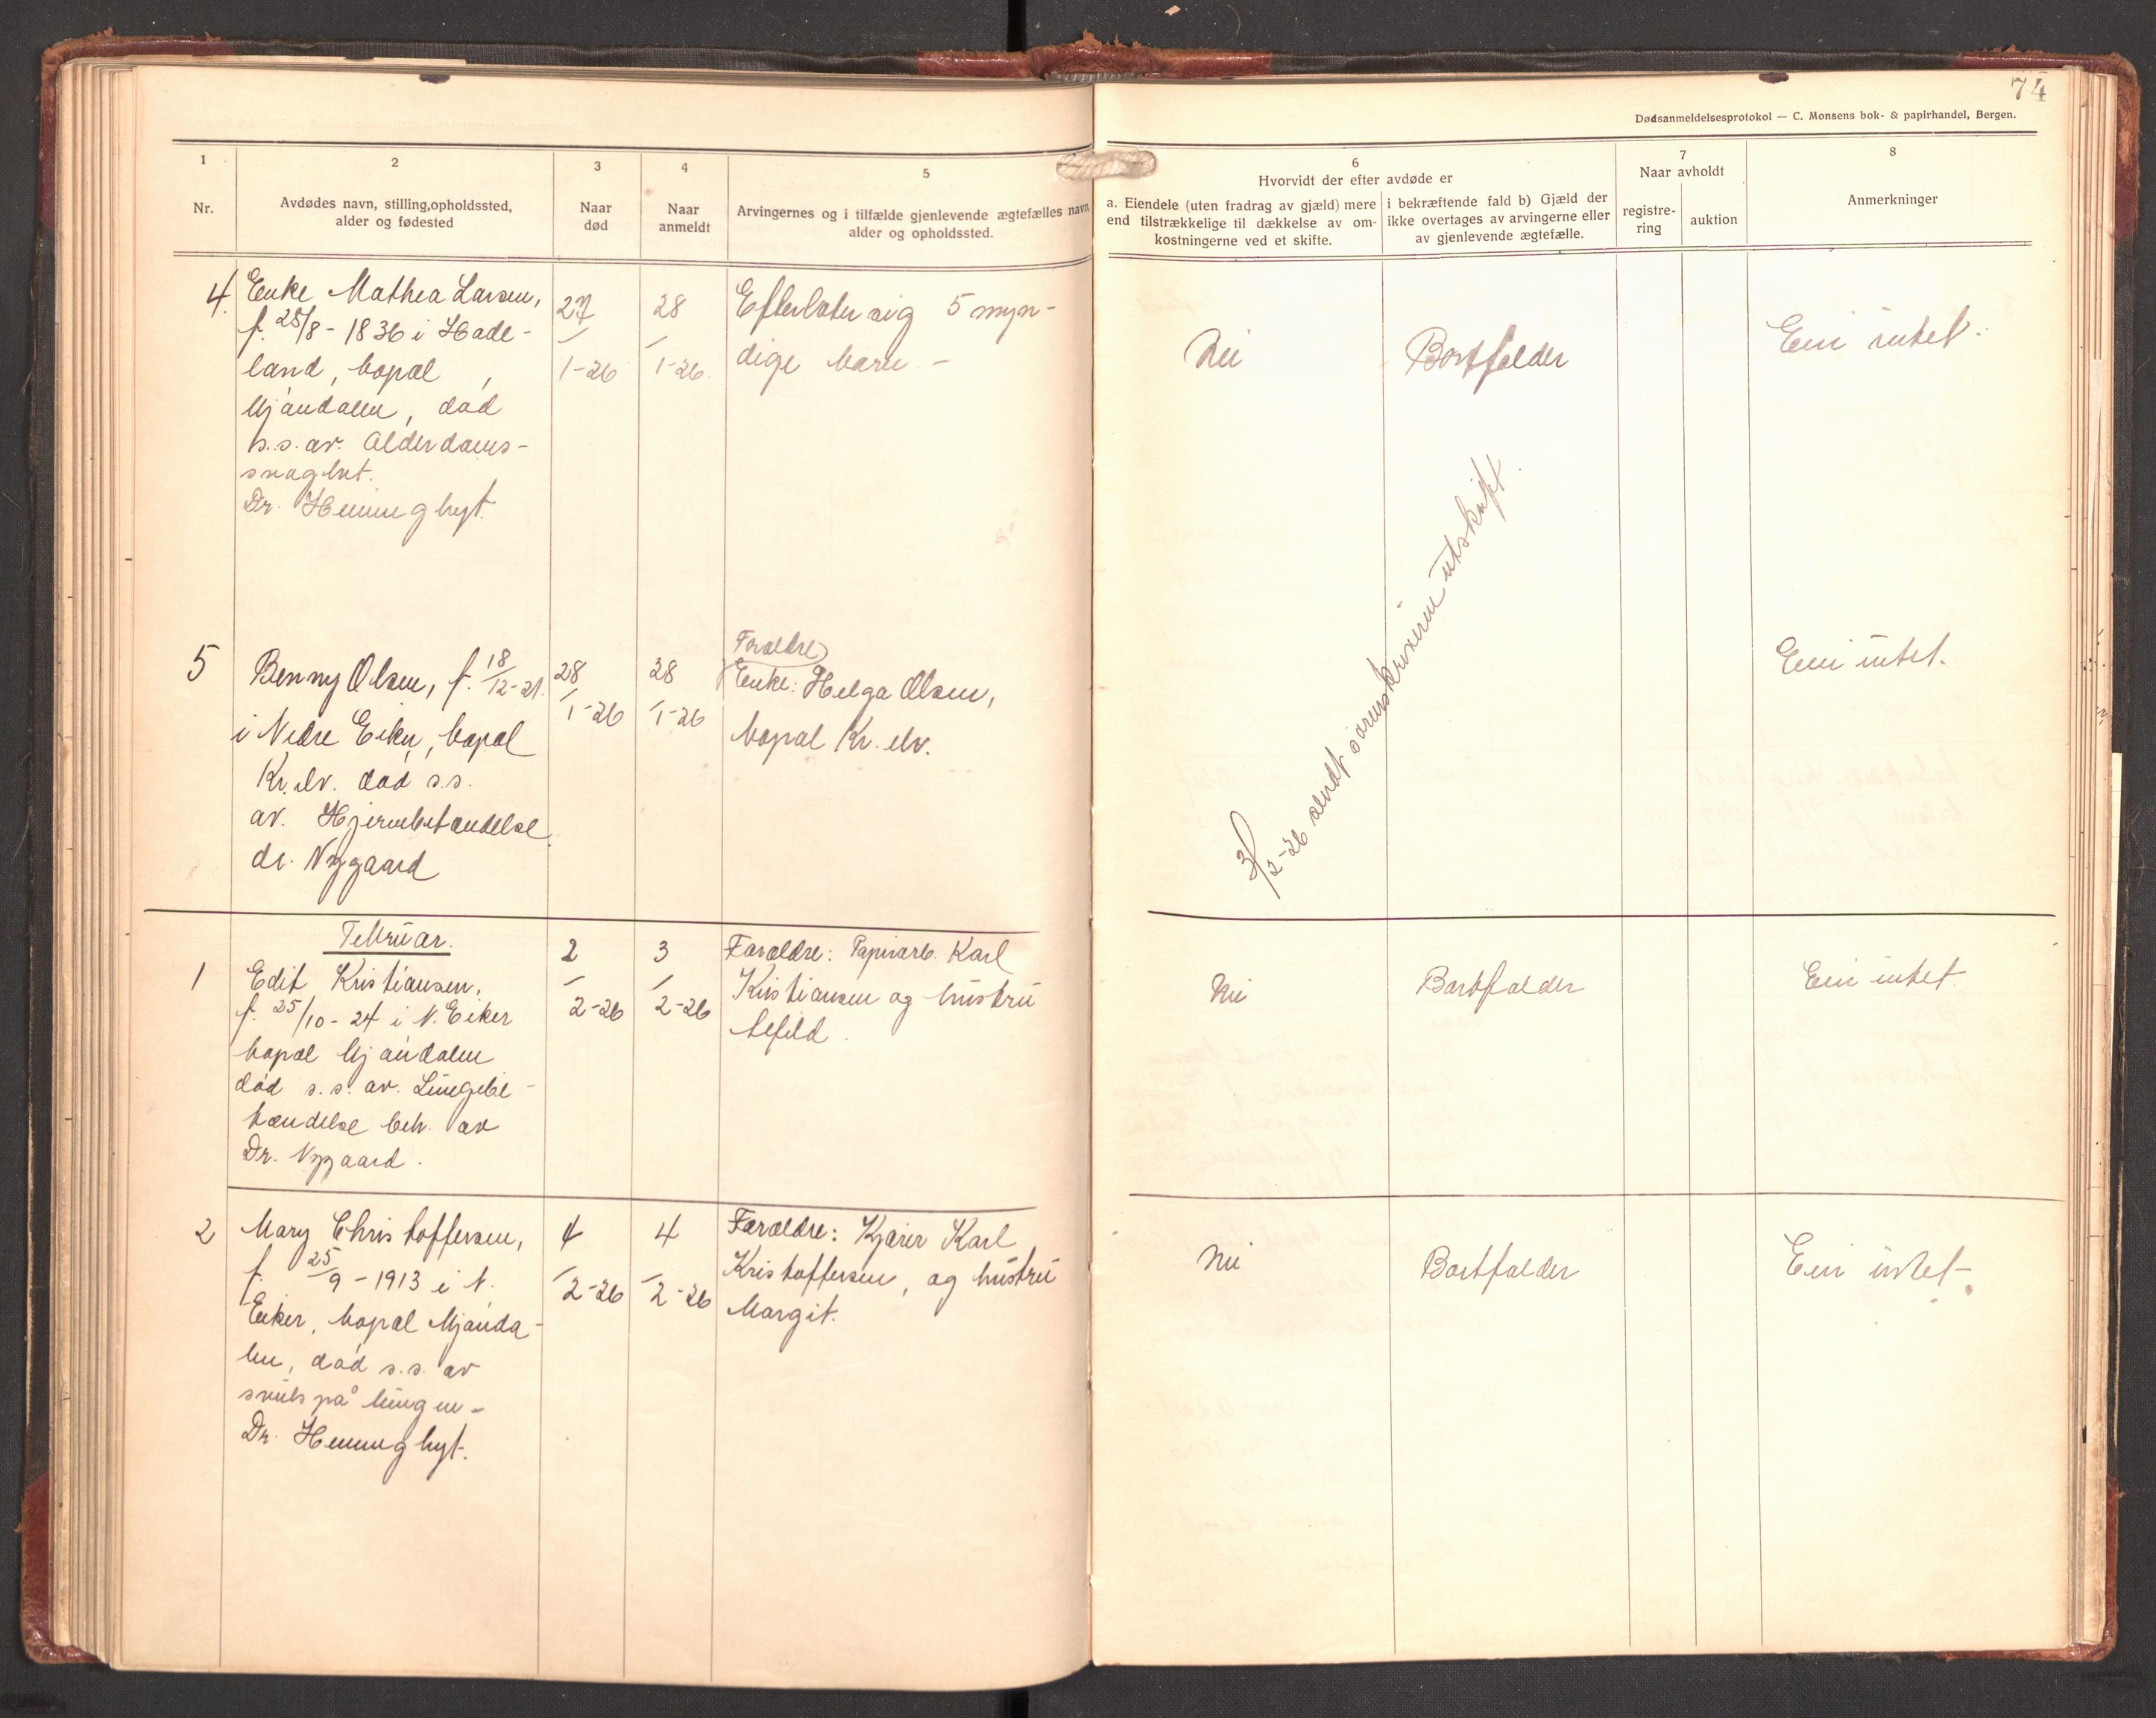 74
Dødsanmeldelsesprotokol — C. Monsens bok- & papirhandel, Bergen.
1
Nr.
2
Avdødes navn, stilling, opholdssted,
alder og fødested
3
Naar
død
4
Naar
anmeldt
5
Arvingernes og i tilfælde gjenlevende ægtefælles navn,
alder og opholdssted.
6
Hvorvidt der efter avdøde er
a. Eiendele (uten fradrag av gjæld) mere
end tilstrækkelige til dækkelse av om-
kostningerne ved et skifte.
i bekræftende fald b) Gjæld der
ikke overtages av arvingerne eller
av gjenlevende ægtefælle.
7
Naar avholdt
registre-
ring
auktion
8
Anmerkninger
4.
Enke Mathea Larsen,
f. 28/8 - 1836 i Hade-
land, bopæl
Mjøndalen, død
s.s. av. Alderdoms-
svaghet.
Dr.
27/1-26
28/1-26.
Efterlater sig 5 myn-
dige barn. -
Nei
Bortfalder
Eier intet.
5
Benny Olsen, f. 18/12-21.
i Nedre Eiker, bopæl
Kr. elv. død s.s.
av. Hjernebetændelse
dr. Nygaard
28/1-26
28/1-26
Forældre
Enke: Helga Olsen,
bopæl Kr. elv.
Eier intet.
3/2-26 sendt sorenskriveren utskrift.
Februar.
1
Edit Kristiansen,
f. 25/10-24 i N. Eiker
bopæl Mjøndalen
død s.s. av. Lungebe-
tændelse beh. av
Dr. Nygaard.
2/2-26
3/2-26
Forældre: Papirarb. Karl
Kristiansen og hustru
Nei
Bortfalder
Eier intet.
2
Mary Christoffersen,
f. 25/9-1913 i N.
Eiker, bopæl Mjønda-
len, død s.s. av
svuls på lungen -
Dr.
4/2-26
4/2-26
Forældre: Kjører Karl
Kristoffersen, og hustru
Margit.
Nei
Bortfalder
Eier intet